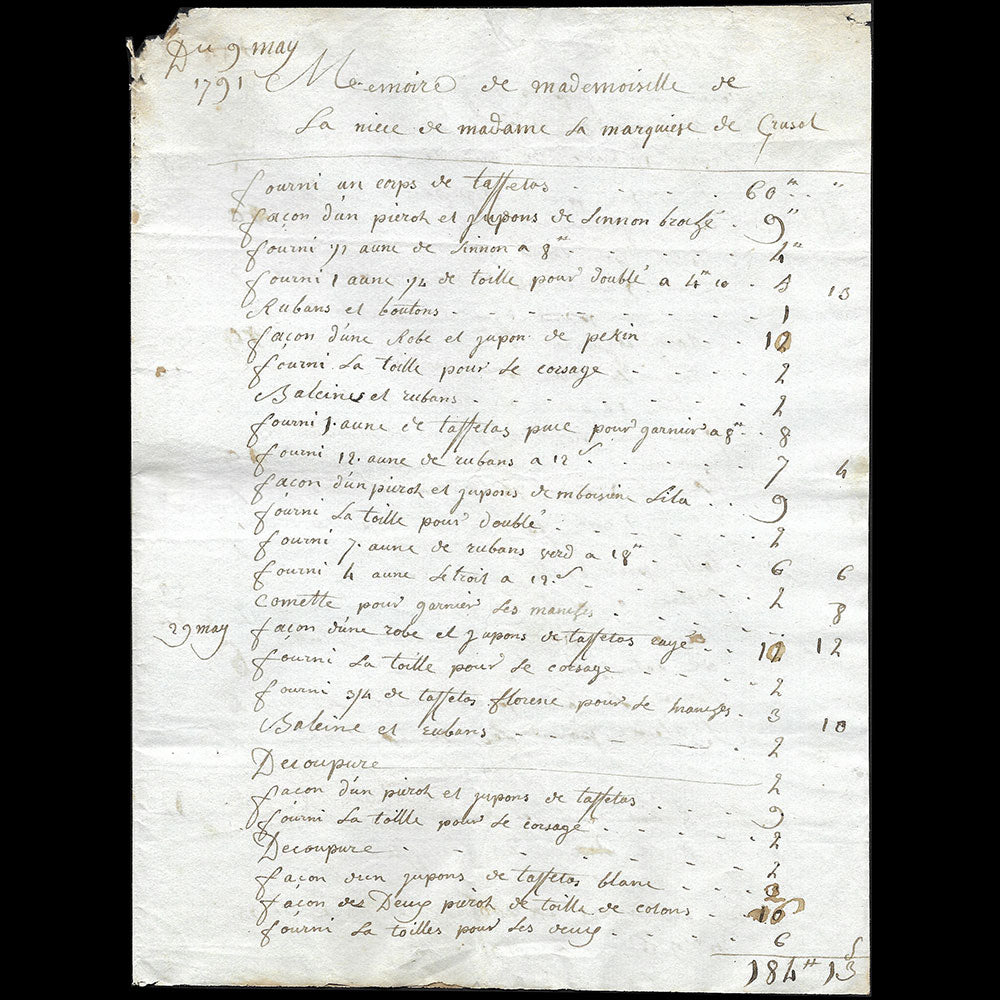 Du 9 may
1791 Memoire de mademoiselle de
La niece de madame La marquiese de Crusol
fourni un corps de taffetas 60" "
façon d'un pierot et jupons de Linnon broché 9"
fourni 1/2 aune de Linnon a 8" 4"
fourni 1 aune 1/4 de toille pour doublé a 4" 10 5 13
Rubans et boutons 1
façon d'une Robe et jupon de pekin 12
fourni La toille pour Le corsage 2
Baleines et rubans 2
fourni 1 aune de taffetas puce pour garnier a 8" 8
fourni 12 aune de rubans a 12s 7 4
façon d'un pierot et jupons de Lila 9
fourni La toille pour doublé 2
fourni 7 aune de rubans verd a 18" 6 6
fourni 4 aune Letroit a 12s 2 8
Comette pour garnier Les manches 12
29 may façon d'une robe et jupons de taffetas 12
fourni La toille pour Le corsage 2
fourni 3/4 de taffetas florene pour Le manches 3 10
Baleine et rubans 2
Decoupure 2
façon d'un pierot et jupons de taffetas 9
fourni La toille pour Le corsage 2
Decoupure 2
façon d'un jupons de taffetas blanc 3
façon des Deux pierot de toille de cotons 10
fourni La toilles pour Les deux 6
184" 13s